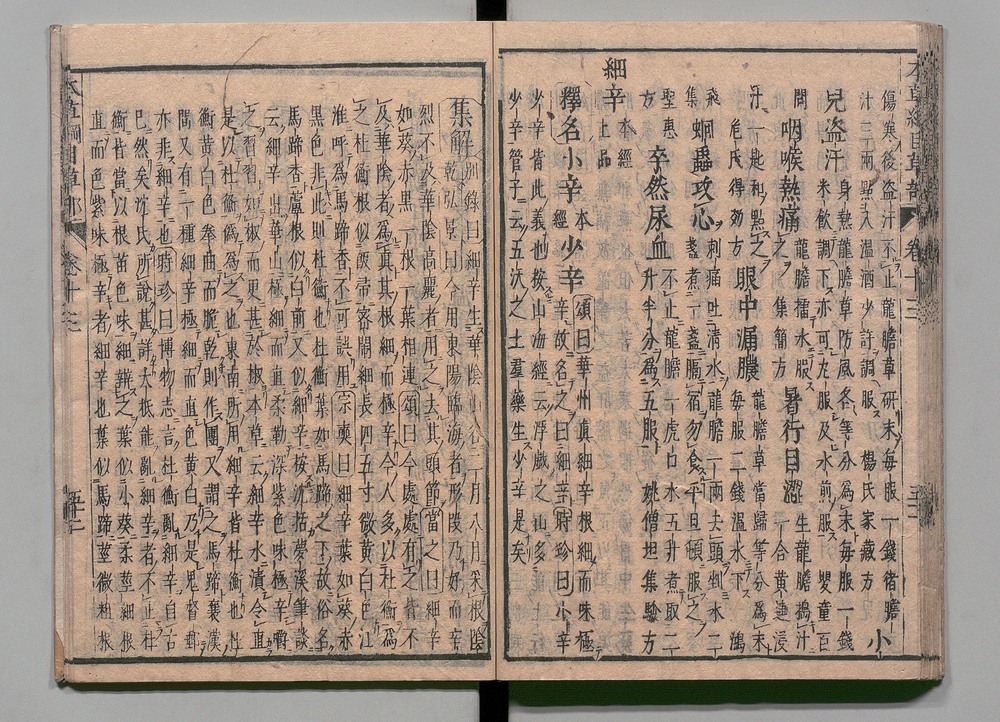 傷寒後盜汗不止龍膽草研末每服一錢猪膽
汁三兩點入溫酒少許調服楊氏家藏方 小
兒盜汗身熱龍膽草防風各等分爲末每服一錢
米飲調下亦可丸服及水前服嬰童百
問 咽喉熱痛龍膽擂水服
之集簡方 暑行目澀生龍膽搗汁
一合黃連浸
汁一匙和點之
危氏得効方 眼中漏膿龍膽草當歸等分爲末
每服二錢溫水下 鴻
飛
集 蛔蟲攻心刺痛吐清水龍膽一兩去頭剉水二
盞煮一盞隔宿勿食平旦頓服之
聖惠
方 卒然尿血不止龍膽一虎口水五升煮取二
升半分爲五服 姚僧坦集驗方
細辛本經
上品
釋名小辛本
經少辛頌曰華州真細辛根細而味極
辛故名之曰細辛時珍曰小辛
少辛皆此義也按山海經云浮戲之山多
少辛管子云五沃之土羣藥生少辛是矣
本草綱目草部 卷十三
集解別錄曰細辛生華陰山谷二月八月采根陰
乾弘景曰今用東陽臨海者形段乃好而辛
烈不及華陰高麗者用之去其頭節當之曰細辛
如葵赤黑一根一葉相連頌曰今處處有之皆不
及華陰者爲真其根細而極辛今人多以杜衡爲
之杜衡根似飯帚密鬧細長四五寸微黃白色江
淮呼爲馬蹄香不可誤用宗奭曰細辛葉如葵赤
黑色非此則杜衡也杜衡葉如馬蹄之下故俗名
馬蹄香蓋根似白前又似細辛按沈括夢溪筆談
云細辛出華山極細而直柔韌深紫色味極辛嚼
之習習如椒而更甚於椒本草云細辛水漬令直
是以杜衡僞爲之也東南所用細辛皆杜衡也杜
衡黃白色拳曲而脆乾則作團又謂之馬蹄襄漢
間又有一種細辛極細而直色黃白乃是鬼督郵
亦非細辛也時珍曰博物志言杜衡亂細辛自古
已然矣沈氏所說甚詳大抵能亂細辛者不止杜
衡皆當以根苗色味細辨之葉似小葵柔莖細根
直而色紫味極辛者細辛也葉似馬蹄莖微粗根
本草綱目草部 卷十三